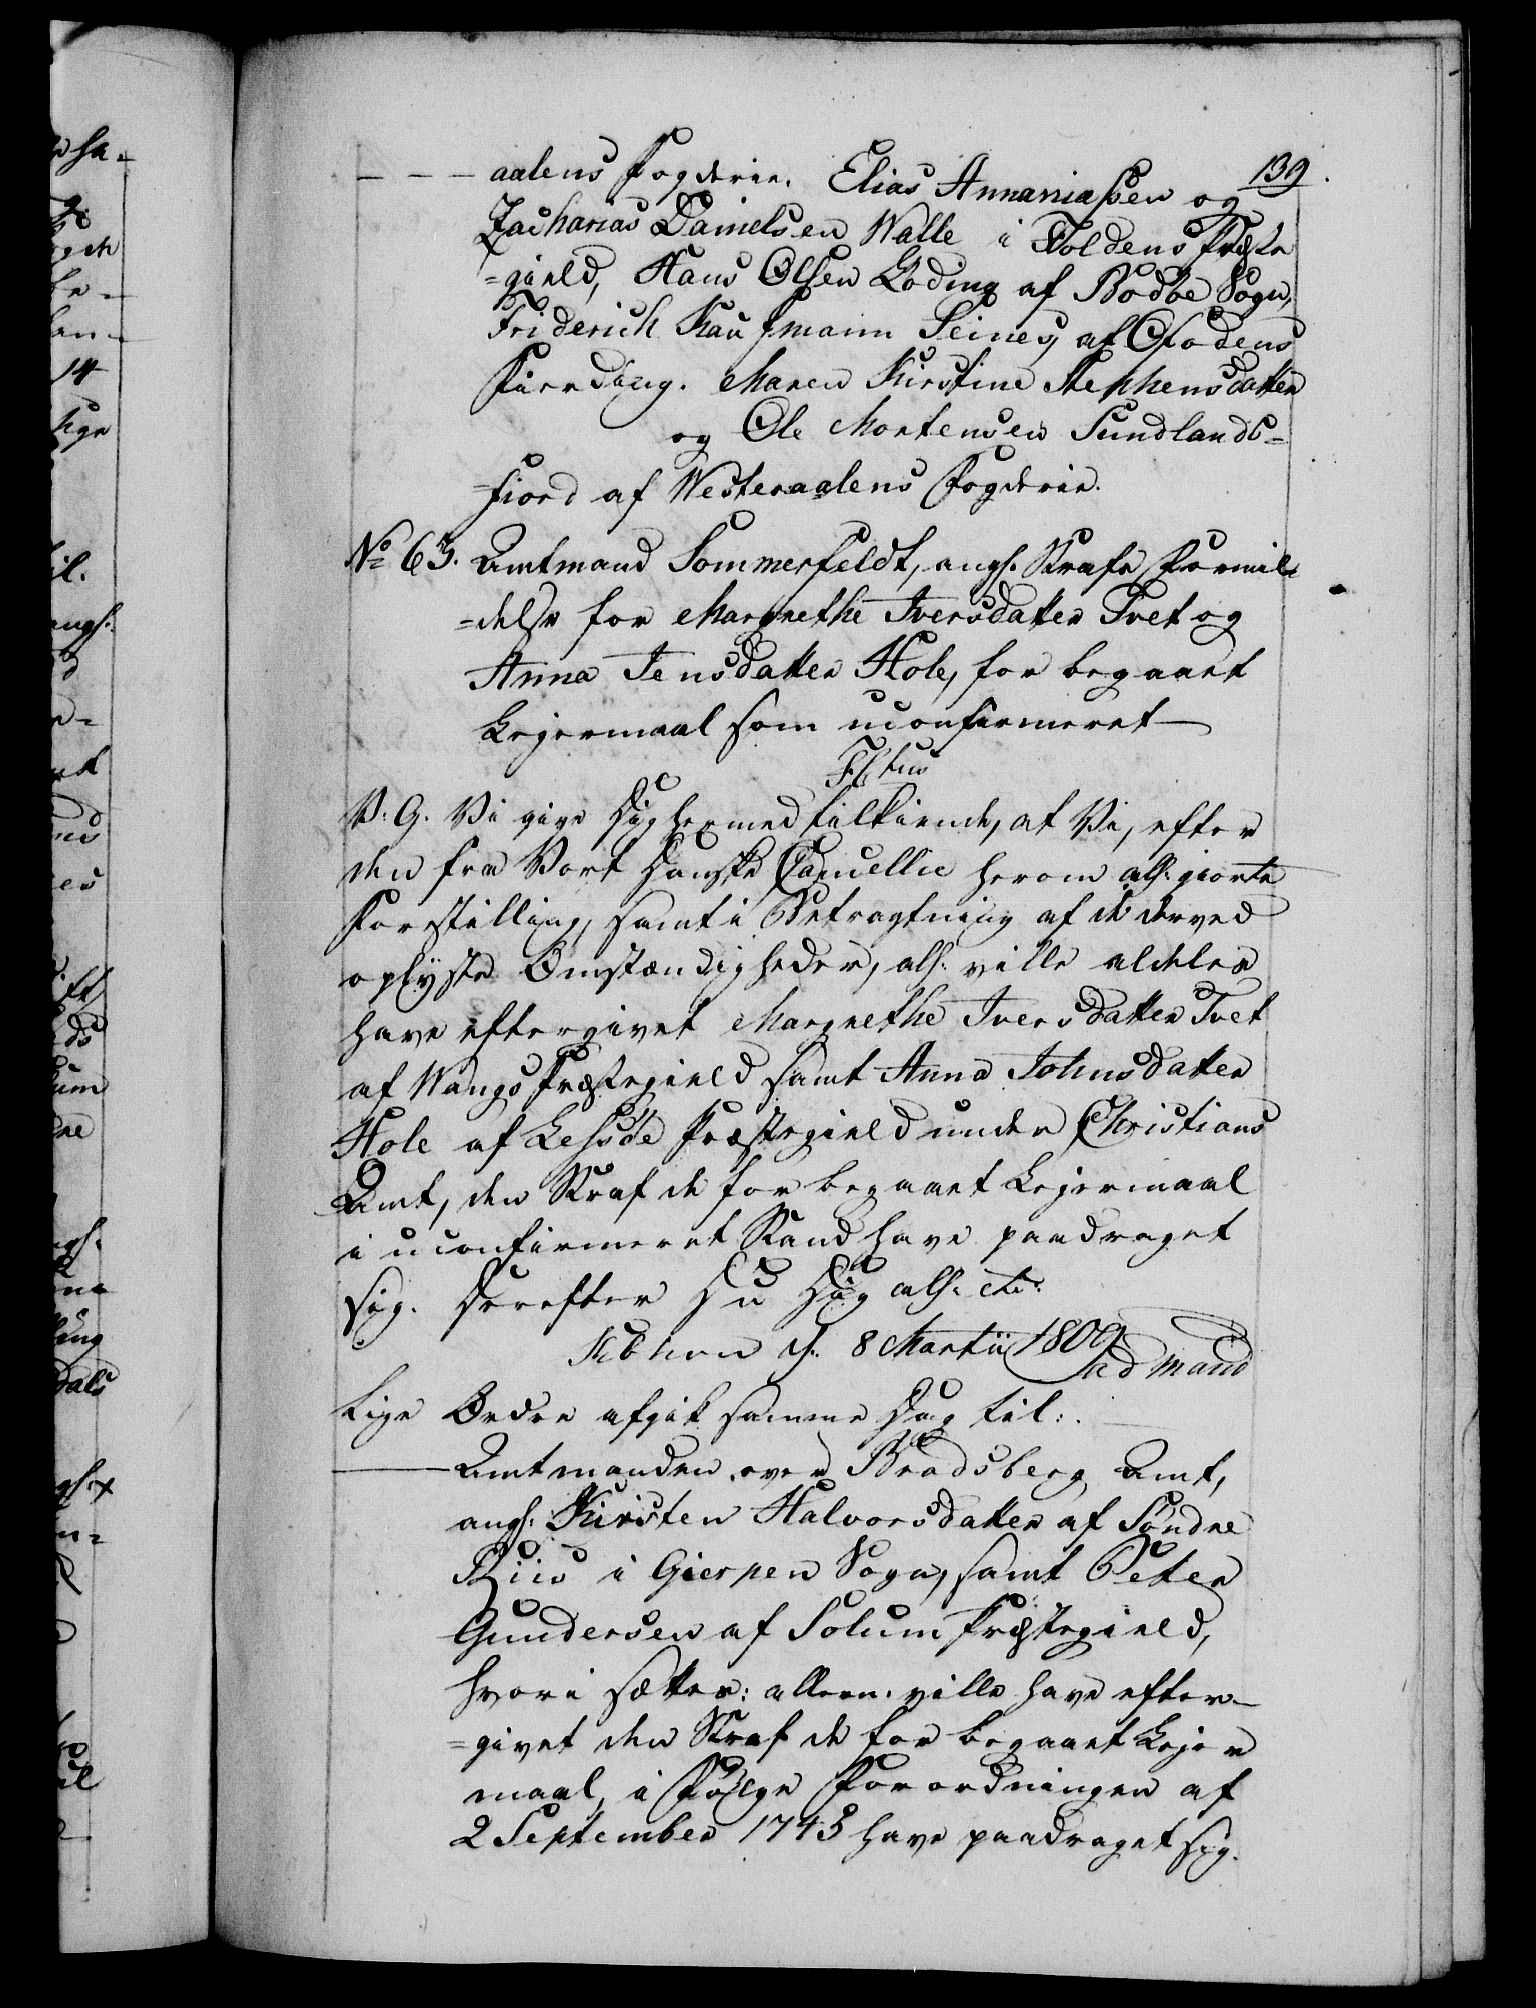 139.
aalens Fogderie. Elias Annaniassen og
Zacharias Danielsen Walle i Foldens Præste
=gield, Hans Olsen Goding af Bodöe Sogn,
Friderich Kaufmann Seines, af Ofodens
Fierding. Maren Kirstine Stephensdatter
og Ole Mortensen Sundlands=
=fiord af Westeraalens Fogderie.
No 63. Amtmand Sommerfeldt, angl. Straffe Formil
=delse for Margrethe Iversdatter Tvet og
Anna Jensdatter Hole, for begaaet
Lejermaal som uconfirmeret
F. C. tus
V. G. Vi give Dig hermed tilkiende, at Vi, efter
den fra Vort Danske Cancellie herom all. giorte
Forestilling, samt i Betragtning af de derved
oplyste Omstændigheder, all. ville aldeles
have eftergivet Margrethe Iversdatter Tvet
af Wangs Præstegield samt Anna Johnsdatter
Hole af Lessöe Præstegield under Christians
Amt, den Straf de for begaaet Lejermaal
i uconfirmeret Stand have paadraget
sig. Derefter Du Dig all. etc.
Kbhvn d. 8 Martii 1809
ad mand
Lige Ordre afgik samme Dag til:
Amtmanden over Bradsberg Amt,
angl. Kirsten Halvorsdatter af Söndre
i Gierpen Sogn, samt Peter
Gundersen af Solum Præstegield,
hvori sættes: allern. ville have efter=
=givet den Straf de for begaaet Lejer
maal, i Fölge Forordningen af
2 September 1745 have paadraget sig.